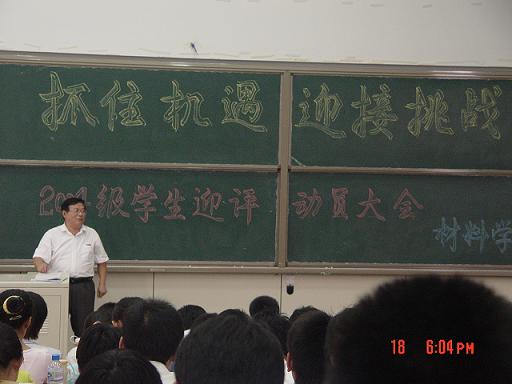 抓住机遇 迎接挑战
级学生迎评 动员大会
材料学
18 6:04PM